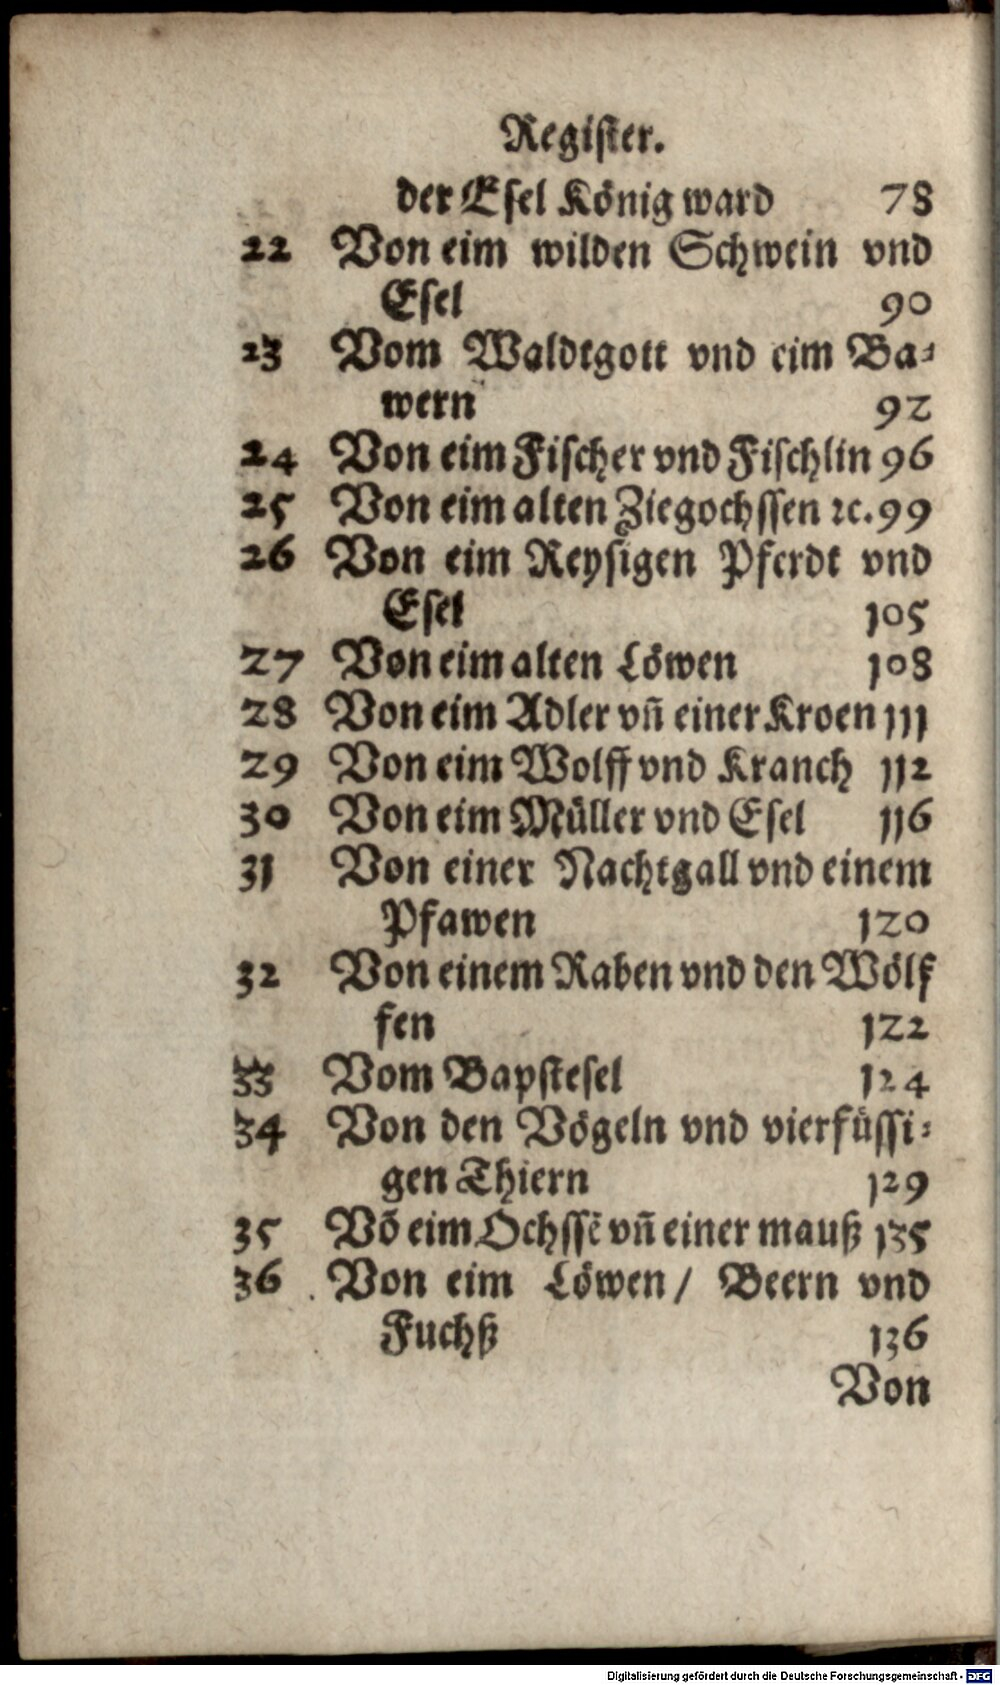 Register.
der Esel König ward 78
22 Von eim wilden Schwein vnd
Esel 90
23 Vom Waldtgott vnd eim Ba⸗
wern 92
24 Von eim Fischer vnd Fischlin 96
25 Von eim alten Ziegochssen ꝛc. 99
26 Von eim Reysigen Pferdt vnd
Esel 105
27 Von eim alten Löwen 108
28 Von eim Adler vn̄ einer Kroen 111
29 Von eim Wolff vnd Kranch 112
30 Von eim Müller vnd Esel 116
31 Von einer Nachtgall vnd einem
Pfawen 120
32 Von einem Raben vnd den Wölf
fen 122
33 Vom Bapstesel 124
34 Von den Vögeln vnd vierfüssi⸗
gen Thiern 129
35 Vō eim Ochssē vn̄ einer mauß 135
36 Von eim Löwen / Beern vnd
Fuchß 136
Von
Digitalisierung gefördert durch die Deutsche Forschungsgemeinschaft - DFG